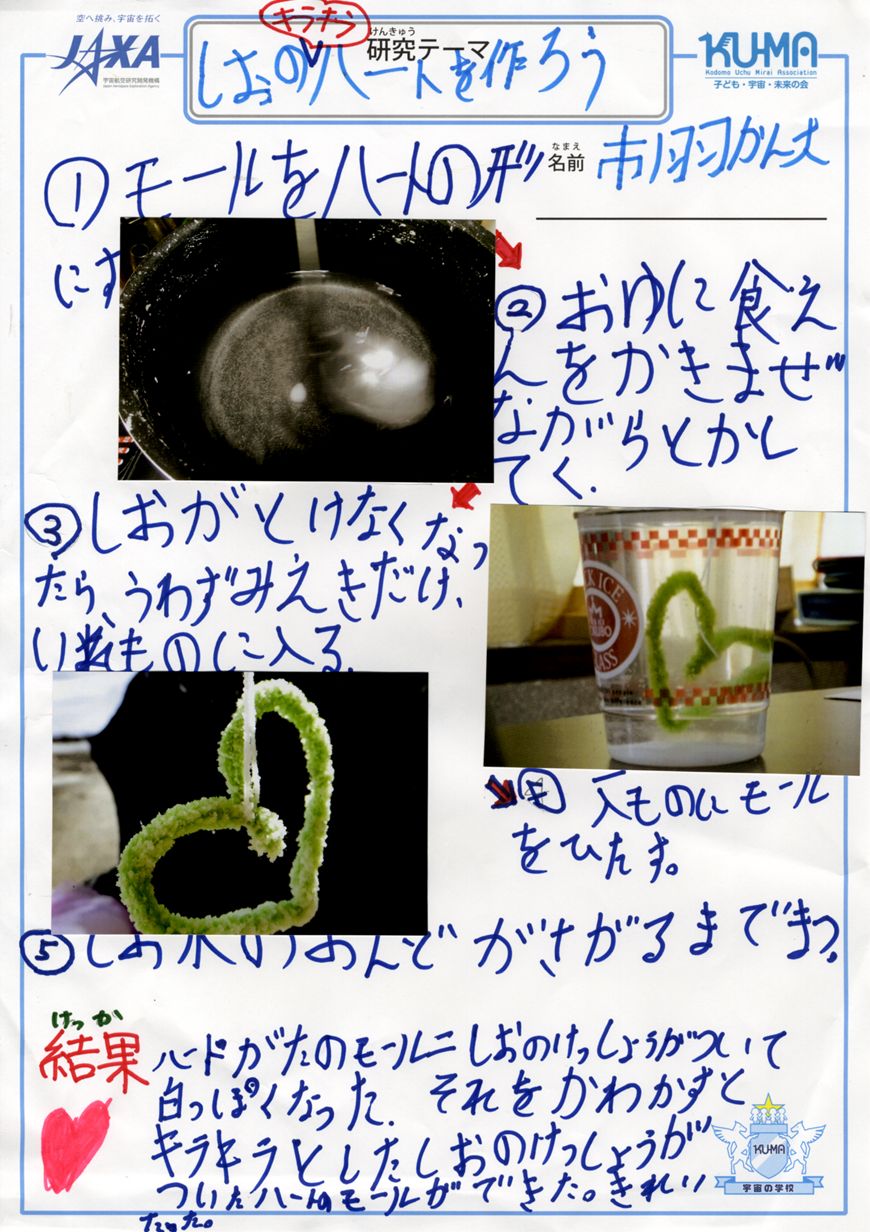 空へ挑み、宇宙を拓く
JAXA
宇宙航空研究開発機構
Japan Aerospace Exploration Agency
けんきゅう
研究テーマ
キラキラ
しおのハートを作ろう
KU-MA
Kodomo Uchu Mirai Association
子ども・宇宙・未来の会
なまえ
名前
市羽かん丈
①モールをハートの形
にす
②おゆに食え
んをかきまぜ
ながらとかし
てく.
③しおがとけなくなっ
たら、うわずみえきだけ、
ものに入る.
ICE
GLASS
④ 入ものにモール
をひたす。
⑤しお水のおんどがさがるまでまつ.
けっか
結果
ハードがたのモールニしおのけっしょうがついて
白っぽくなった. それをかわかすと
キラキラとしたしおのけっしょうが
ついたハートのモールができた。きれい
だった。
KU-MA
宇宙の学校